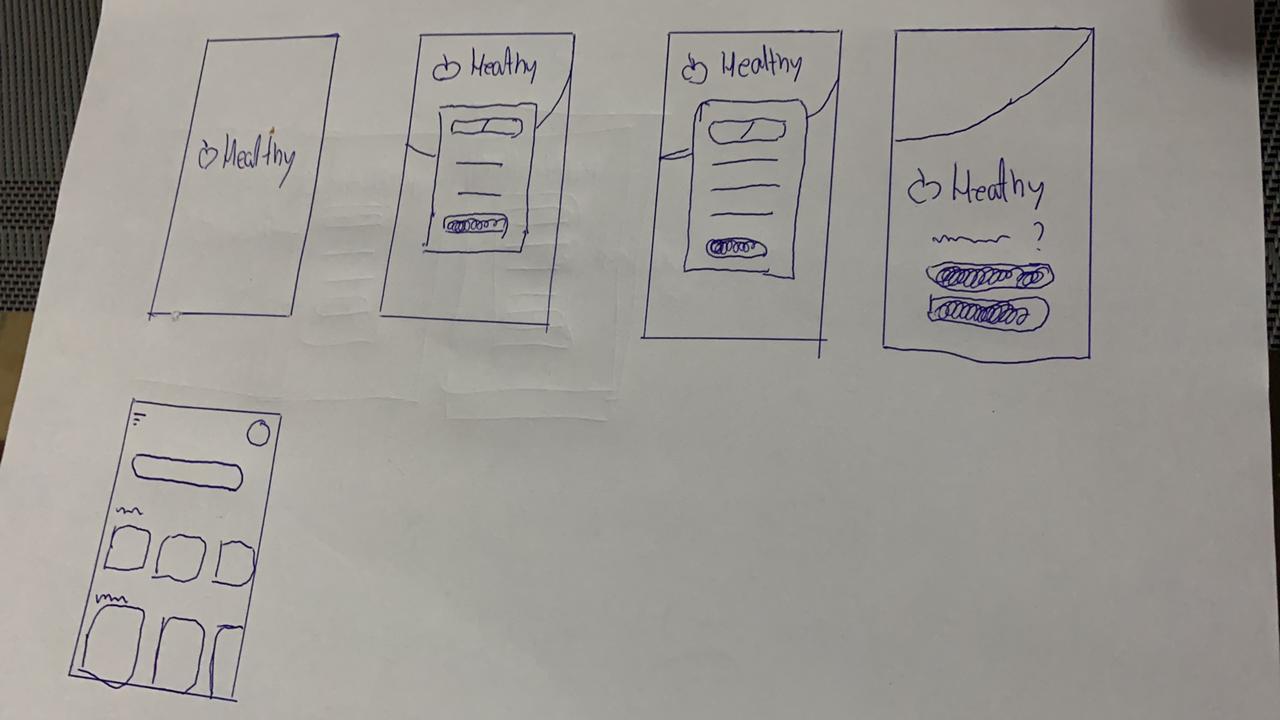 Healthy
Healthy
Healthy
Healthy
?